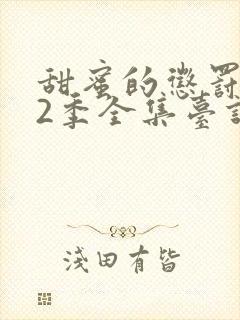 甜蜜的懲罰
2季全集臺詞
淺田有皆